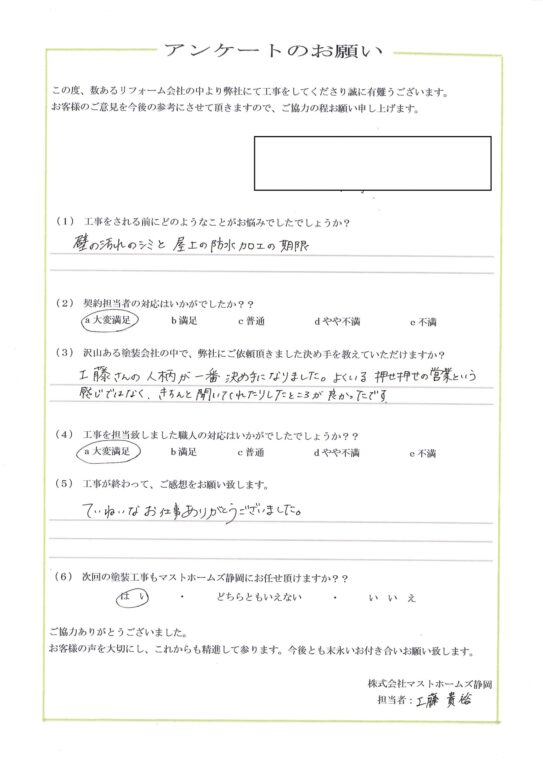 アンケートのお願い
この度、数あるリフォーム会社の中より弊社にて工事をしてくださり誠に有難うございます。
お客様のご意見を今後の参考にさせて頂きますので、ご協力の程お願い申し上げます。
(1) 工事をされる前にどのようなことがお悩みでしたでしょうか？
壁の汚れのシミと 屋上の防水加工の期限
(2) 契約担当者の対応はいかがでしたか？？
a 大変満足 b 満足 c 普通 d やや不満 e 不満
(3) 沢山ある塗装会社の中で、弊社にご依頼頂きました決め手を教えていただけますか？
工藤さんの人柄が一番決め手になりました。よくいる押せ押せの営業という
感じではなく、きちんと聞いてくれたりしたところが良かったです
(4) 工事を担当致しました職人の対応はいかがでしたでしょうか？
a 大変満足 b 満足 c 普通 d やや不満 e 不満
(5) 工事が終わって、ご感想をお願い致します。
ていねいなお仕事ありがとうございました。
(6) 次回の塗装工事もマストホームズ静岡にお任せ頂けますか？？
はい ・ どちらともいえない ・ いいえ
ご協力ありがとうございました。
お客様の声を大切にし、これからも精進して参ります。今後とも末永いお付き合いお願い致します。
株式会社マストホームズ静岡
担当者：工藤 貴裕